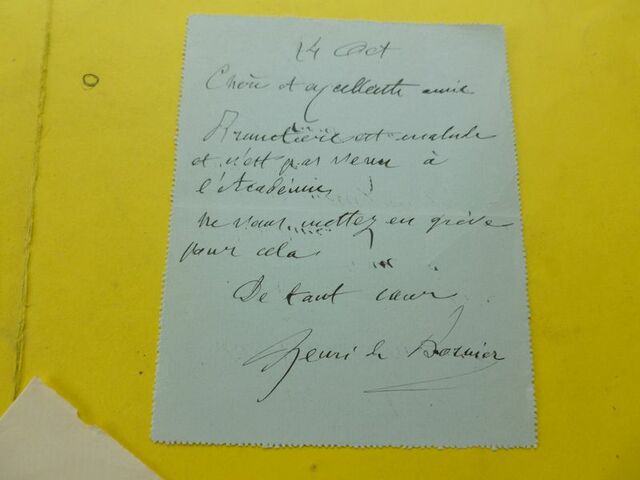 14 Oct
Chère et excellente amie
Brunetière est malade
et n'est pas venu à
l'Académie
ne vous mettez en grève
pour cela
De tout cœur
Henri de Bornier